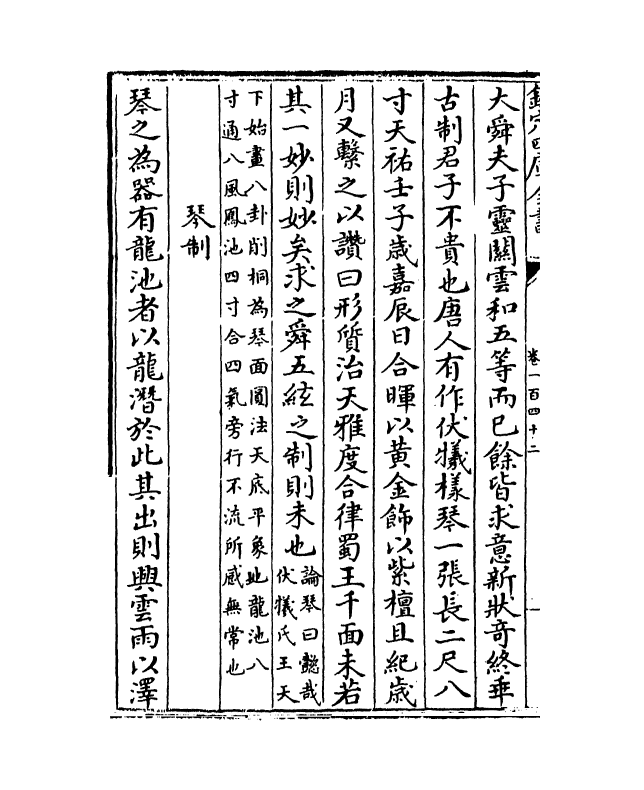 欽定四庫全書
卷一百四十二
大舜夫子靈關雲和五等而已餘皆求意新狀竒終乖
古制君子不貴也唐人有作伏犧様琴一張長二尺八
寸天祐壬子歳嘉辰日合暉以黄金飾以紫檀且紀歳
月又繫之以讚曰形質治天雅度合律蜀王千面未若
其一妙則妙矣求之舜五絃之制則未也論琴曰懿哉
伏犧氏王天
下始畫八卦削桐為琴面圓法天底平象地龍池八
寸通八風鳳池四寸合四氣旁行不流所感無常也
琴制
琴之為器有龍池者以龍潛於此其出則興雲雨以澤